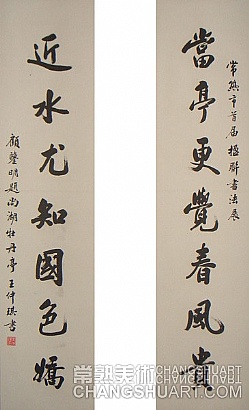 常熟市首届楹聯書法展
當亭更覺春風貴
近水尤知國色嬌
顧鑒明題尚湖牡丹亭 王仲琪書
常熟美术
CHANGSHUART
CHANGSHUART.COM